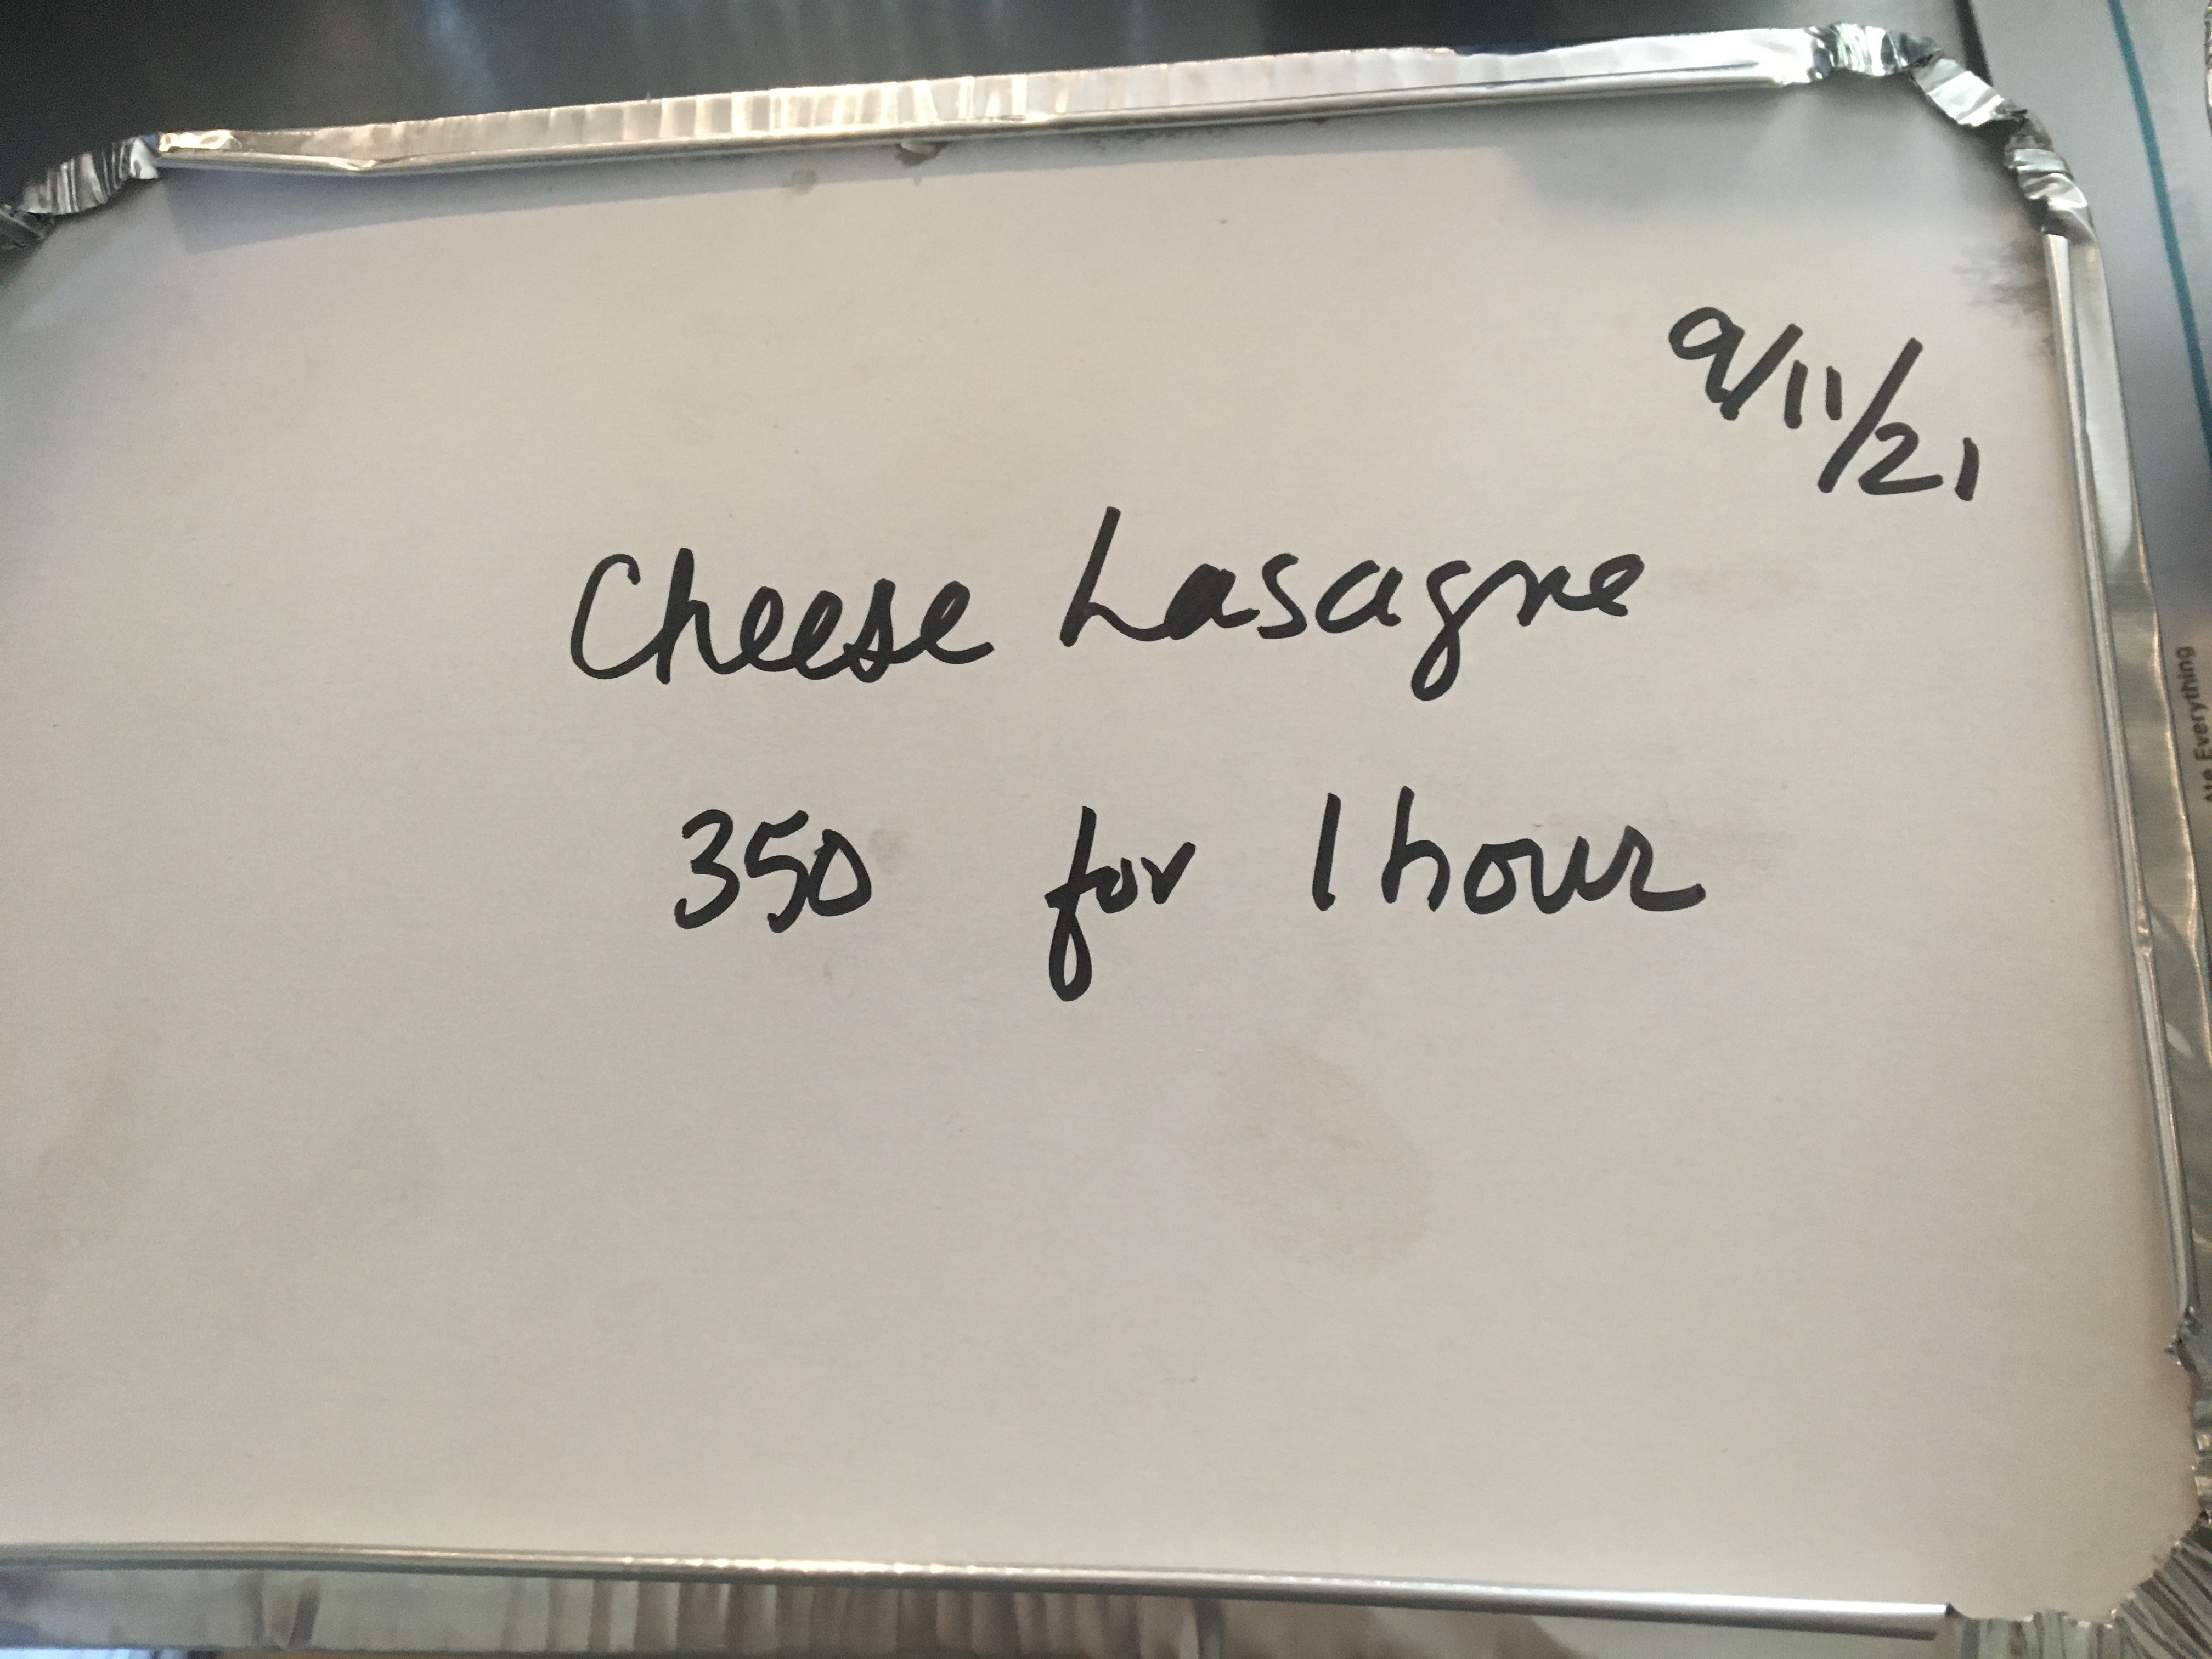 9/11/21
Cheese Lasagne
350 for 1 hour
Everything